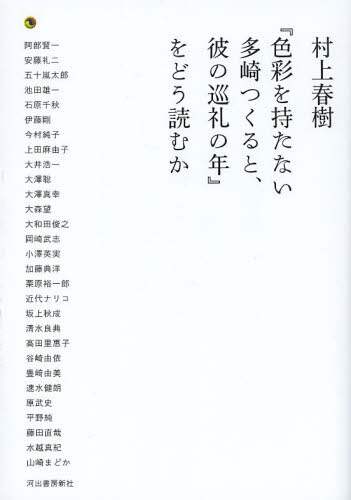 村上春樹
『色彩を持たない
多崎つくると、
彼の巡礼の年』
をどう読むか
阿部賢一
安藤礼二
五十嵐太郎
池田雄一
石原千秋
伊藤剛
今村純子
上田麻由子
大井浩一
大澤聡
大澤真幸
大森望
大和田俊之
岡崎武志
小澤英実
加藤典洋
栗原裕一郎
近代ナリコ
坂上秋成
清水良典
高田里惠子
谷崎由依
豊崎由美
速水健朗
原武史
平野純
藤田直哉
水越真紀
山崎まどか
河出書房新社